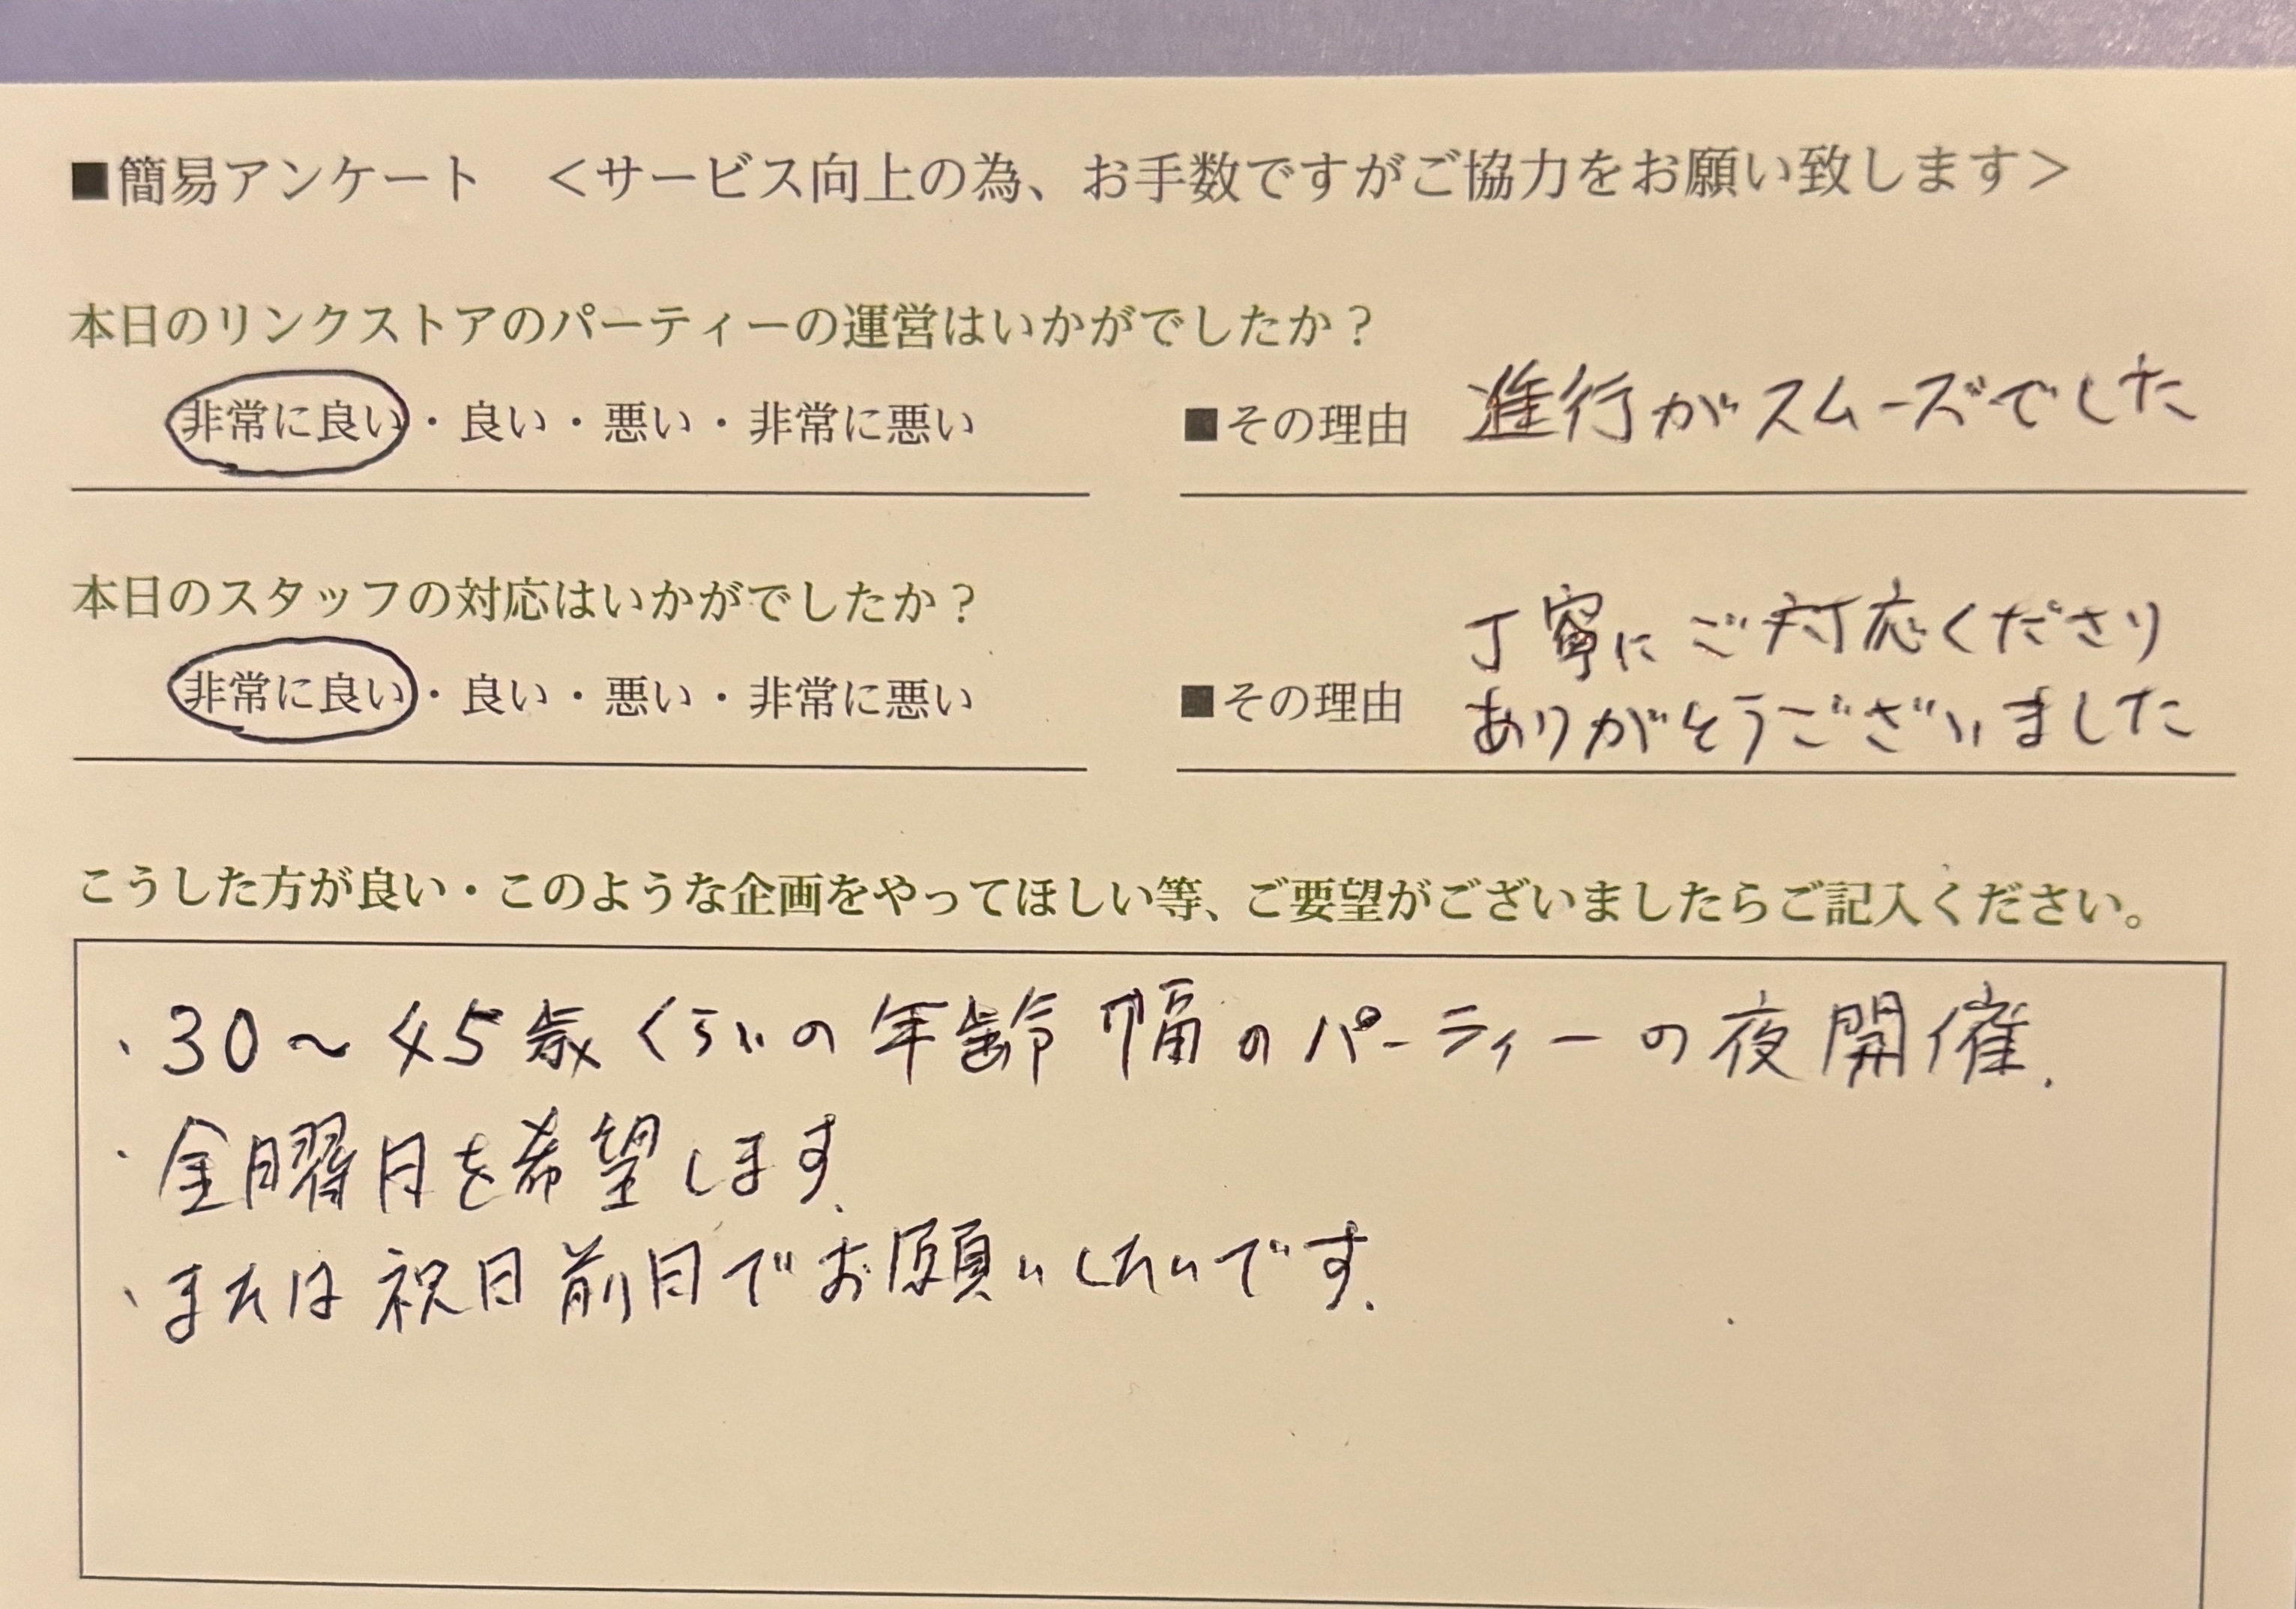 ■簡易アンケート　＜サービス向上の為、お手数ですがご協力をお願い致します＞
本日のリンクストアのパーティーの運営はいかがでしたか？
非常に良い・良い・悪い・非常に悪い　■その理由　進行がスムーズでした
本日のスタッフの対応はいかがでしたか？
丁寧にご対応くださり
非常に良い・良い・悪い・非常に悪い　■その理由
ありがとうございました
こうした方が良い・このような企画をやってほしい等、ご要望がございましたらご記入ください。
・30～45歳くらいの年齢幅のパーティーの夜開催.
・金曜日を希望します.
・または祝日前日でお願いしたいです.